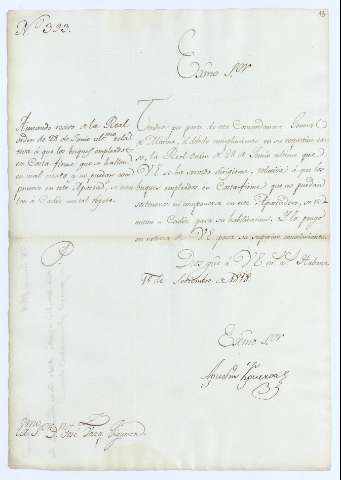 Nº 393.
Exmo Sor
Acusando recivo a la Real
orden de 28 de Junio ultmo rela
tiva à que los buques empleados
en Costa-firme que se hallen
en mal estado, y no puedan com
ponerse en este Apostadero, se
à Cadiz con tal objeto.
Tendrá por parte de esta Comandancia General
de Marina, el debido cumplimiento en su respectivo ca
so, la Real orden de 28 de Junio ultimo que
VE se ha servido dirigirme, relativa à que los
buques empleados en Costa-firme que no puedan
sostenerse ni componerse en este Apostadero, se re
mitan a Cadiz para su habilitacion. Y lo pongo
en noticia de VE para su superior conocimiento.
Dios gue à VE ms as Habana
15 de Setiembre de 1818.
Exmo Sor
Agustin Figueroa
Exmo Sor Dn José Vazqz Figueroa